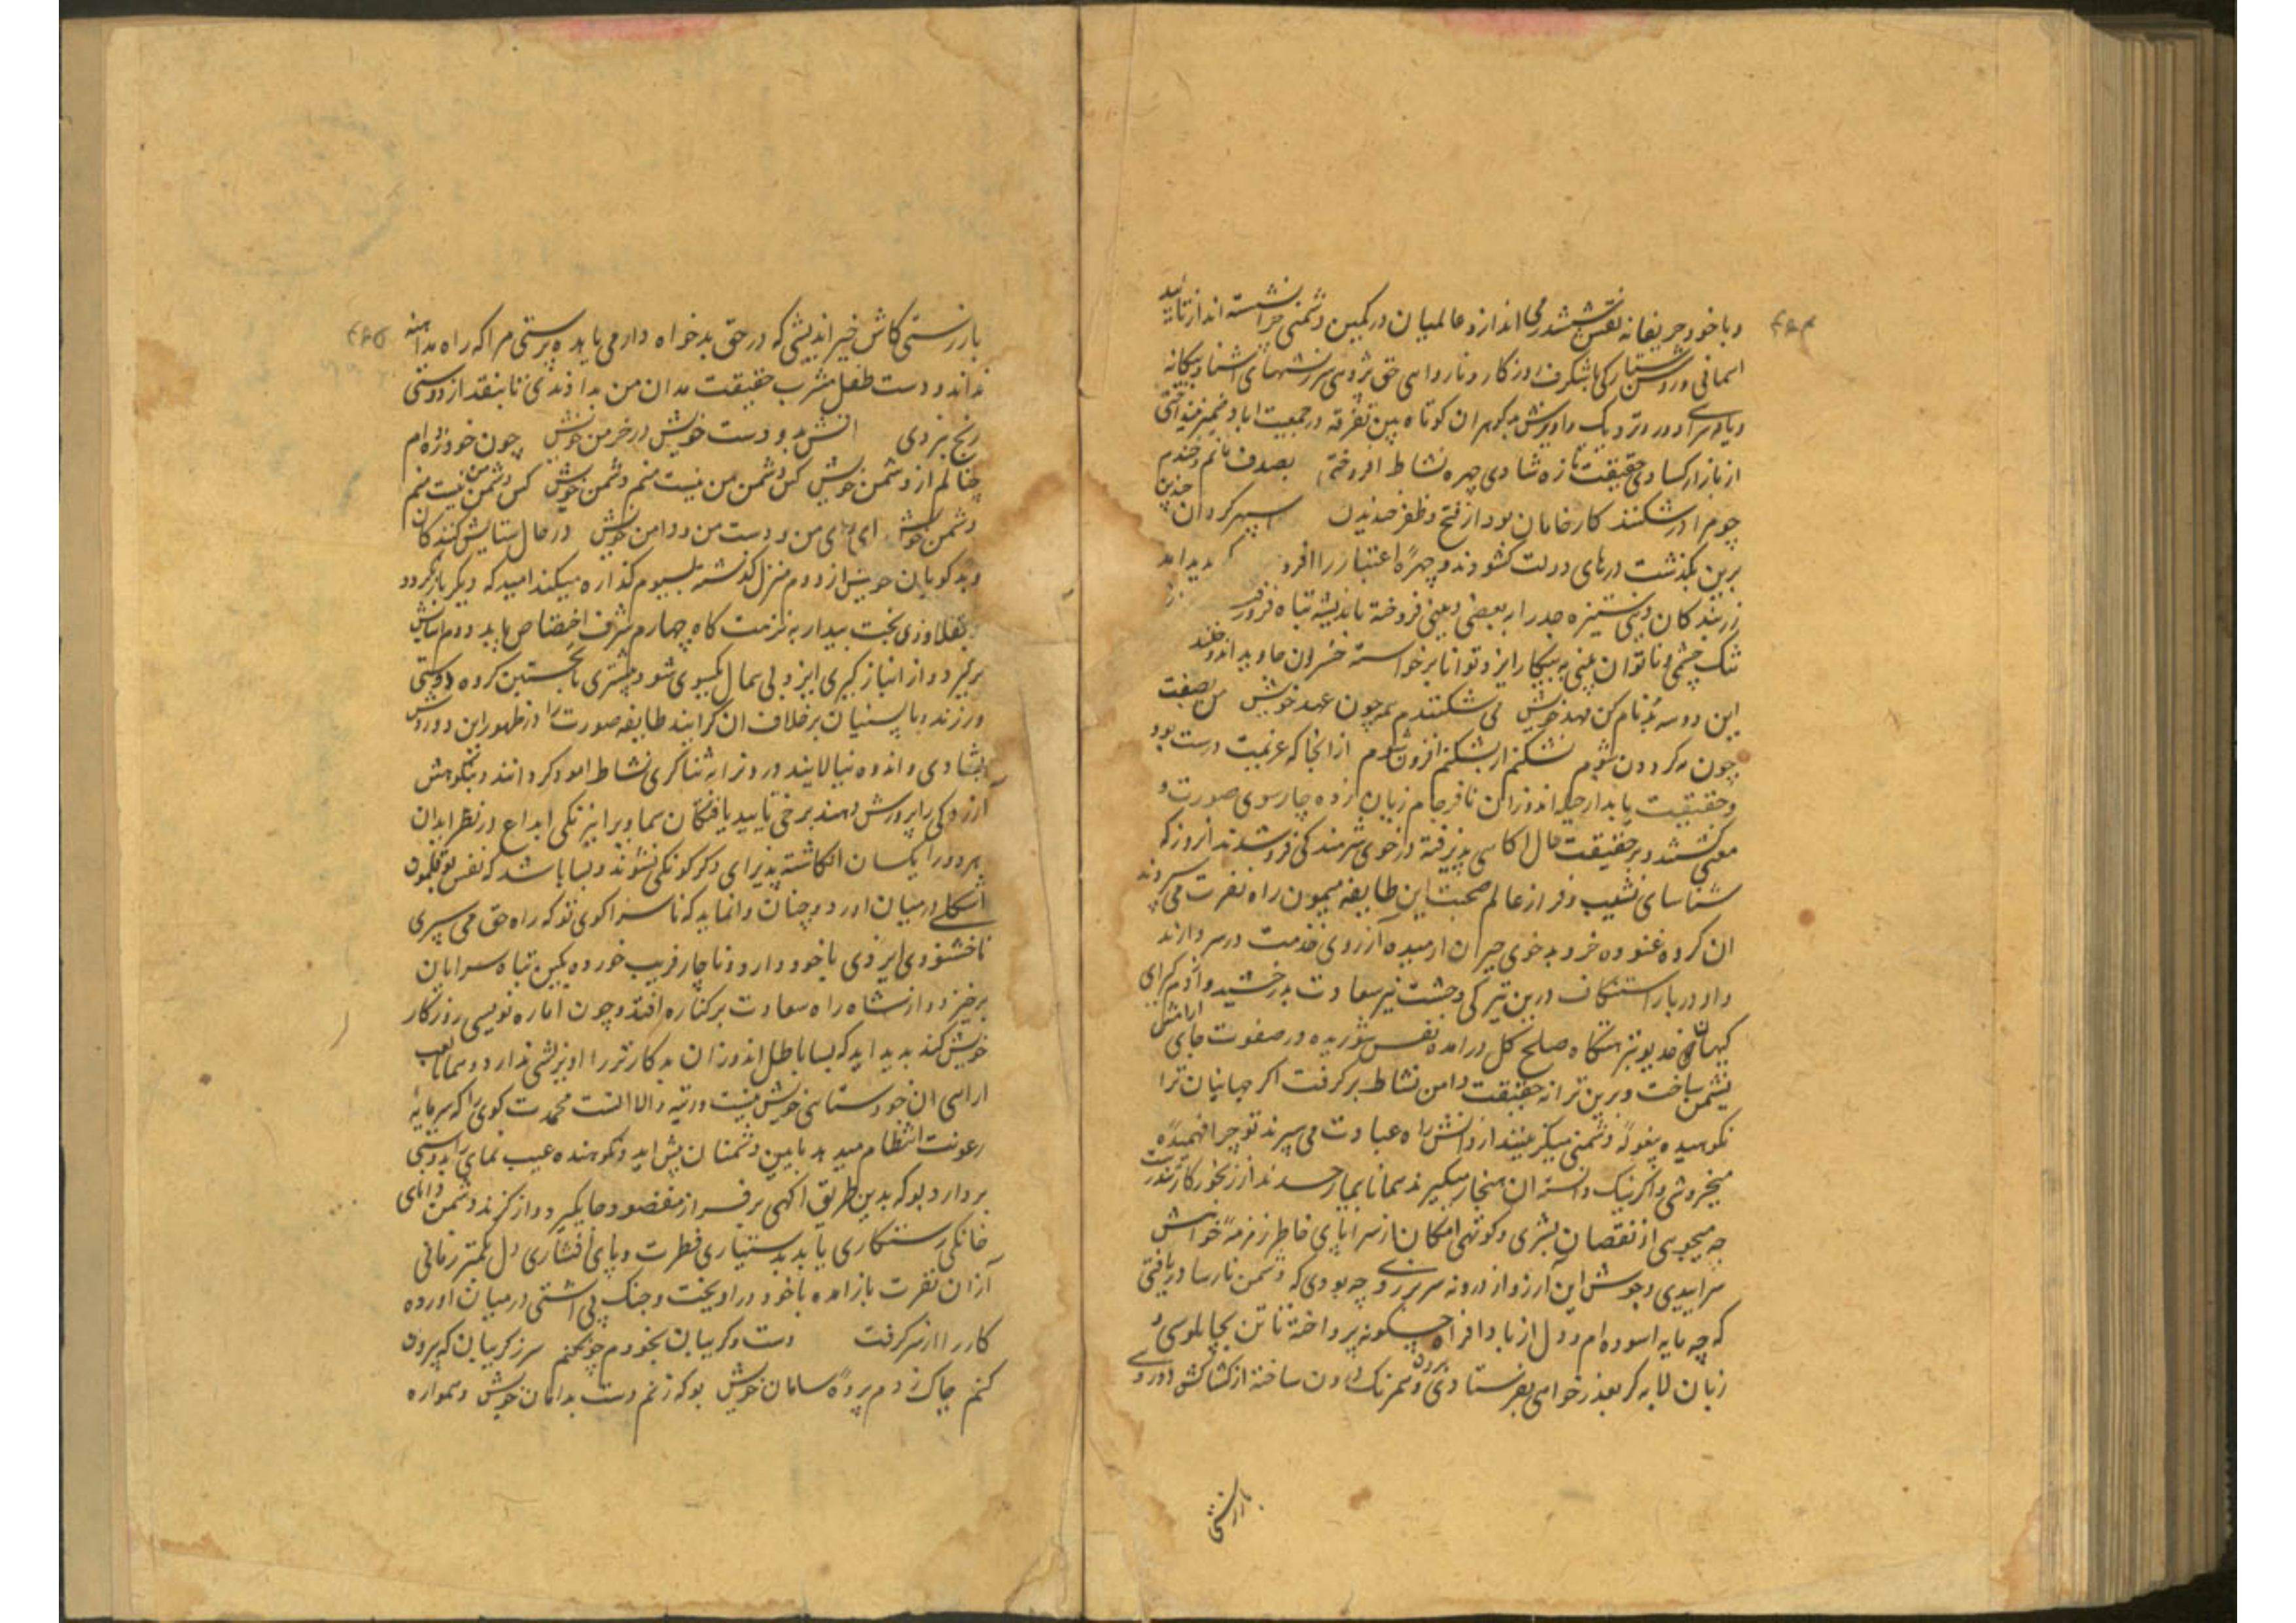 و با خود حریفانه نقش ششدر می اندازد عالمیان در کمین دشمنی چرا نشسته اند از تائید
اسمانی و روشن ستارگی با شگرف روزگار و ناروا ہی حق پژوہی سرزنشهای اشنا و بیگانه
و یاوہ سرای دور و نزدیک و اویزش بد گوہران کوتاه بین تفرقه در جمعیت اباد ضمیر نینداختی
از بازار کسادی حقیقت تازه شادی چهره نشاط افروختی بصدف مانم و خندم
چو مرا در شکنند کار خامان بود از فتح و ظفر خندیدن سپهر گردان چندین
برین بگذشت درهای دولت گشودند و چهرهٔ اعتبار را افرو پدید امد
زر بندگان دین ستیزه جدرا به بعضی دینی فروخته باندیشه تباه فرو
تنک چشمی و ناتوان بینی به پیکار ایزد توانا برخواسته خسران جاوید اندوختند
این دو سه بدنام کن مهد خویش می شکنندم همه چون عهد خویش من بصفت
چون مه گردون شوم نشکنم ار بشکنم افزون شوم از انجا که عزیمت درست بود
و حقیقت پایدار حیله اندوزان نافرجام زیان زده چارسوی صورت و
معنی گشتند و بر حقیقت حال اگاہی پذیرفته در خوی شرمندگی فرو شدند امروز که
شناسای نشیب و فراز عالم صحبت این طایفه میمون راه نفرت می سپرد
ان گروه غنوده خرد بد خوی حیران ارمیده آرزوی خدمت در سر دارند
داور در بار استنکاف درین تیرگی وحشت نیر سعادت بدرخشید و ادم گرای
کیهان خدیو بنزهتگاه صلح کل درامده نفس شوریده در صفوت جای ارامش
نشیمن ساخت و برین ترانه حقیقت دامن نشاط برگرفت اگر جهانیان ترا
نکوهیده پیغولهٔ دشمنی میگزینند از دانش راه عبادت می سپرند تو چرا فهمیده
میخروشی و اگر نیک دانسته ان هنجار میگیرند همانا بیمار حسدند از رنجور کار تندرست
چه میجویی از نقصان بشری و کوتهی امکان از سراپای خاطر زمزمهٔ خواهش
سراییدی و جوش این آرزو از درونه سر برزدی چه بودی که دشمن نارسا دریافتی
که چه مایه اسوده ام و دل از باد افراه چگونه پرداخته تا تن بچاپلوسی و
زبان لابه گر بعذر خواهی بفرستادی و همرنگ درون ساخته از کشاکش دوروی
بازرستی
بازرستی کاش خیر اندیشی که در حق بدخواه دارم می یابد ه پرستی مرا که راه مداہنه
نداند و دست طفل مشرب حقیقت مدان من بدادندی تا بنقد از دوستی
رنج نبردی اتش بدو دست خویش در خرمن خویش چون خود زده ام
چنالم از دشمن خویش کس دشمن من نیست منم دشمن خویش کس دشمن من نیست منم
دشمن خویش ای وای من و دست من و دامن خویش در حال ستایش کنندگان
و بد گویان خویش از دوم منزل گذشته بسیوم گذاره میکند امید که دیگر بازنگردد
بقلاوزی بخت بیدار به نزهت گاه چهارم شرف اختصاص یابد و دم اسایش
برگیرد و از انباز گیری ایزد بی ہمال یکسوی شود پیشتری با نخستین گروه دوستی
ورزند و با پسینیان برخلاف ان گرایند طایفه صورت را از ظهور این دو روش
بشادی و اندوه نیالایند در و نرا به ثناگری نشاط امود گردانند و بنکوهش
آزردگی را پرورش دهند برخی تایید یافتگان سماوی را نیرنگی ابداع در نظر ایدان
هر دو را یکسان انگاشته پذیرای دگرگونگی نشوند و بسا باشد که نفس بوقلمون
اشکلے در میان اورد و چنان وانماید که ناسزا گوی تو که راه حق می سپری
ناخشنودی ایزدی باخود دارد و ناچار فریب خورده بکین تباه سرایان
برخیزد و از شاه راه سعادت برکناره افتد و چون اماره نویسی روزگار
خویش کند پدید اید که بسا باطل اندوزان بد کارتر را اویزشی ندارد و همانا تعب
ارایی ان خود ستایی خویش نیست و رتبه والا انست محمدت گوی را که سرمایهٔ
رعونت انتظام میدهد بایین دشمنان پیش اید و نکوهنده عیب نمای را بدوستی
بردارد بو که بدین طریق اگهی بر فراز مقصود جا گیرد و از گزند دشمن دانای
خانگی رستگاری یابد بدستیاری فطرت و پای افشاری دل بکمتر زمانی
آزان نفرت بازامده باخود دراویخت و جنگ بی اشتی در میان اورده
کار را از سر گرفت دست و گریبان بخودم چون کنم سر ز گریبان که برون
کنم چاک زدم پردهٔ سامان خویش بو که زنم دست بدامان خویش و همواره